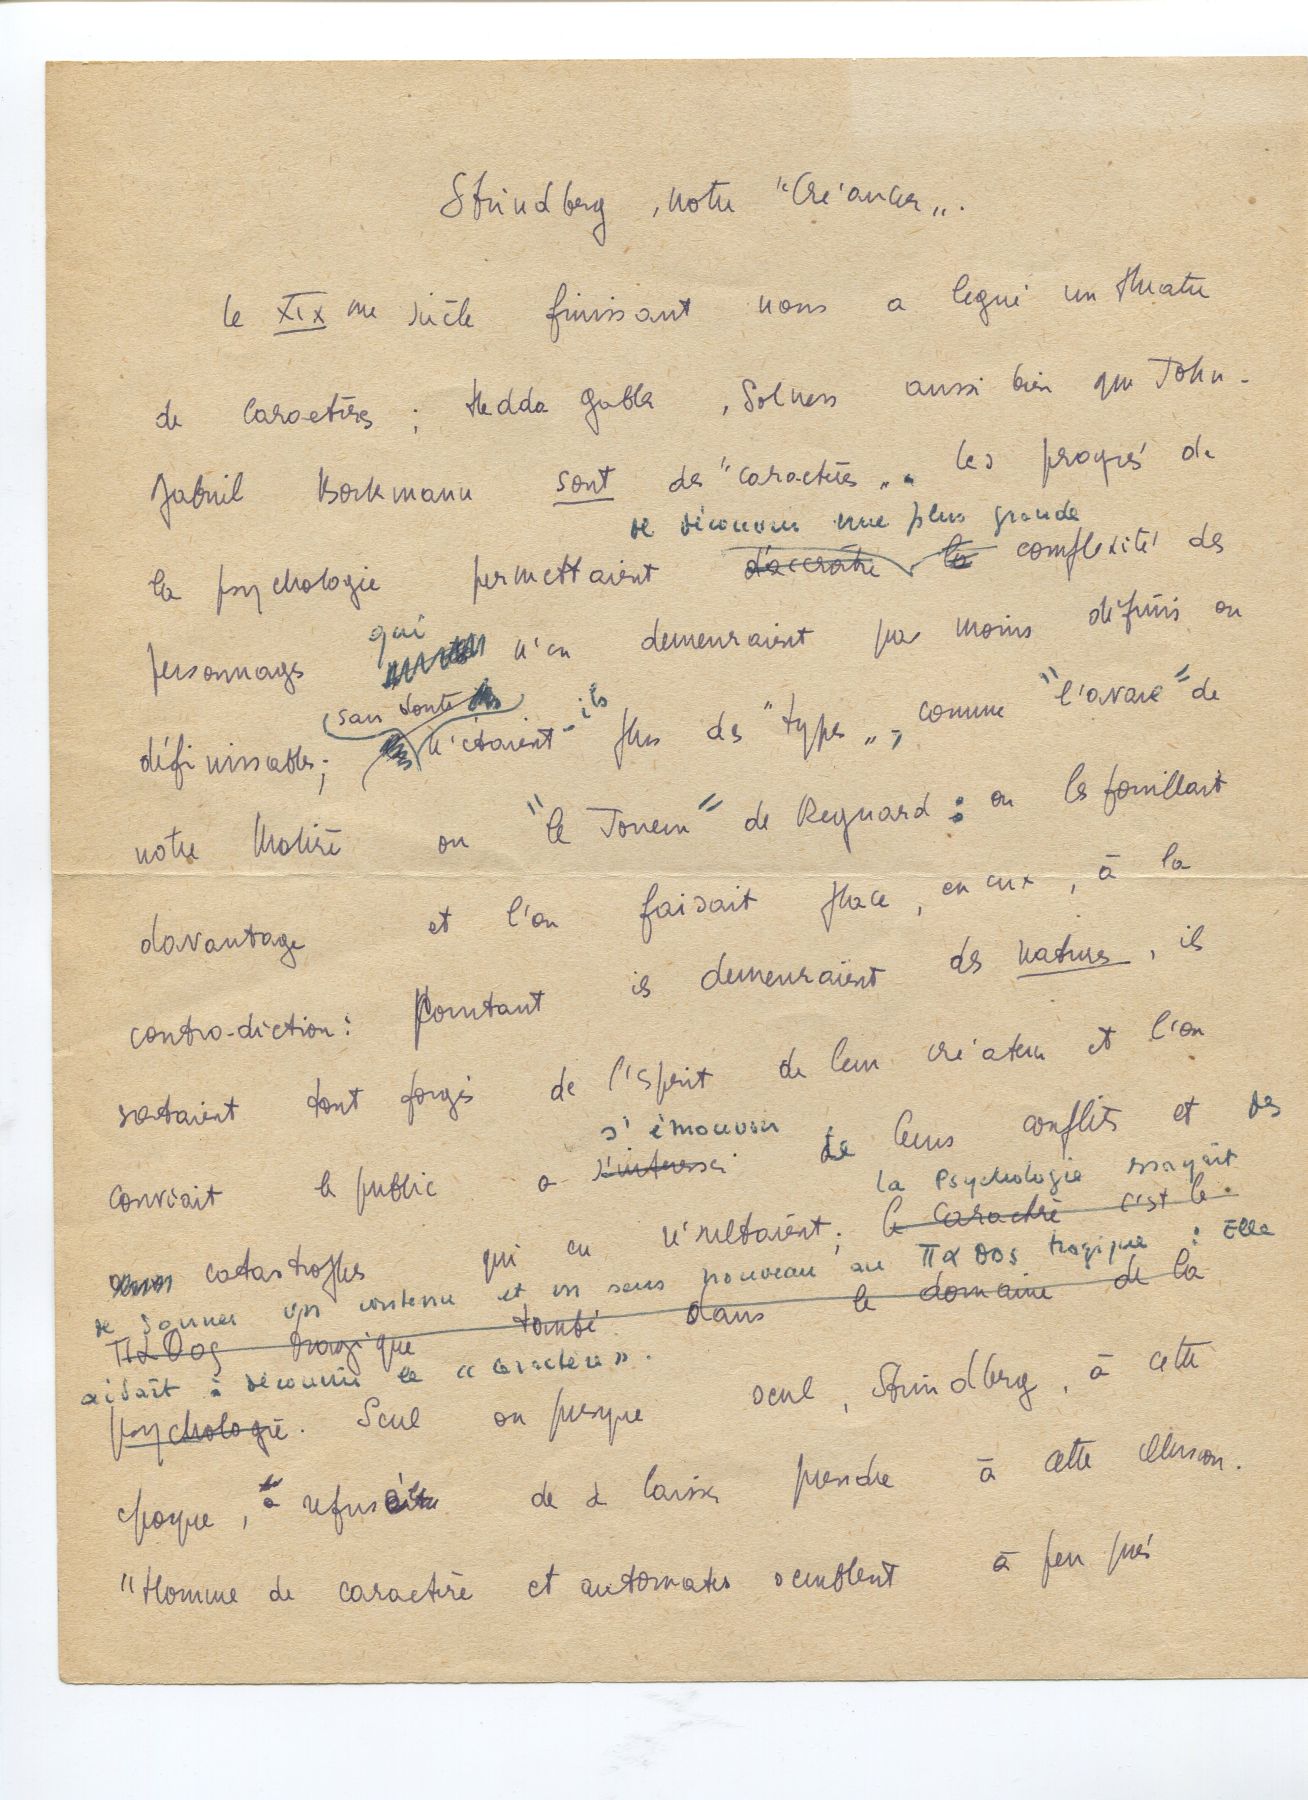 Strindberg, notre "Créancier".
Le XIXme siècle finissant nous a légué un théâtre
de caractères ; Hedda Gabler, Solness aussi bien que John-
Gabriel Borkmann sont des "caractères". Les progrès de
de découvrir une plus grande
la psychologie permettaient d'accroître la complexité des
qui
personnages n'en demeuraient pas moins définis ou
sans doute ils
définissables ; n'étaient-ils plus des "types", comme "l'avare" de
notre Molière ou "le Joueur" de Regnard : on les fouillait
davantage et l'on faisait place, en eux, à la
contra-diction : Pourtant ils demeuraient des natures, ils
sortaient tout forgés de l'esprit de leur créateur et l'on
s'émouvoir
conviait le public à s'intéresser de leurs conflits et des
la Psychologie essayait
catastrophes qui en résultaient ; le caractère c'est le
de donner un contenu et un sens nouveau au παθος tragique : Elle
παθος tragique tombé dans le domaine de la
aidait à découvrir le "caractère".
psychologie. Seul ou presque seul, Strindberg, à cette
époque, a refusé de se laisser prendre à cette illusion.
"Homme de caractère et automates semblent à peu près